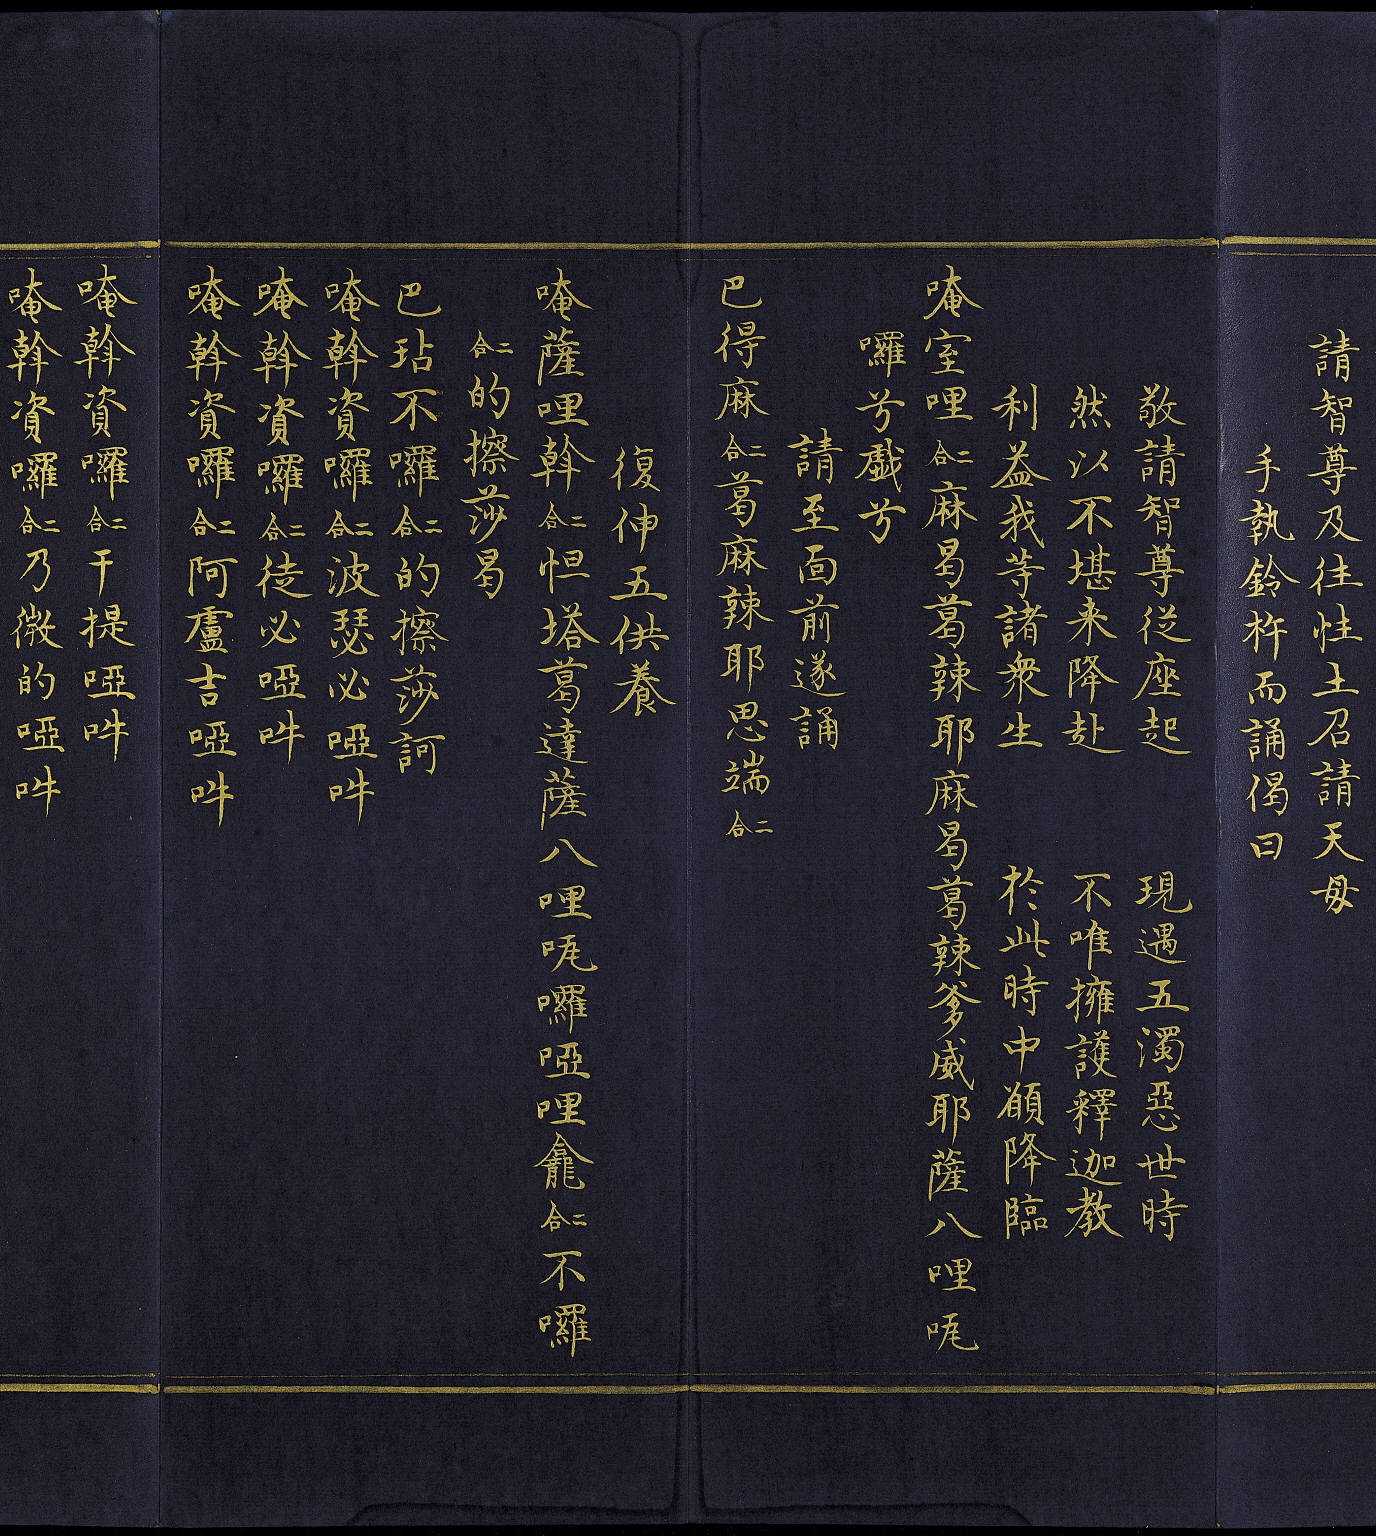 請智尊及往性土召請天母
手執鈴杵而誦偈曰
敬請智尊從座起 現遇五濁惡世時
然以不堪来降赴 不唯擁護釋迦教
利益我等諸衆生 於此時中願降臨
唵室哩二合麻曷葛辣耶麻曷葛辣爹威耶薩八哩㖇
囉兮戲兮
請至面前遂誦
巴得麻二合葛麻辣耶思端二合
復伸五供養
唵薩哩斡二合怛塔葛達薩八哩㖇囉啞哩龕二合不囉
二合的擦莎曷
巴玷不囉二合的擦莎訶
唵斡資囉二合波瑟必啞吽
唵斡資囉二合徒必啞吽
唵斡資囉二合阿盧吉啞吽
唵斡資囉二合干提啞吽
唵斡資囉二合乃微的啞吽